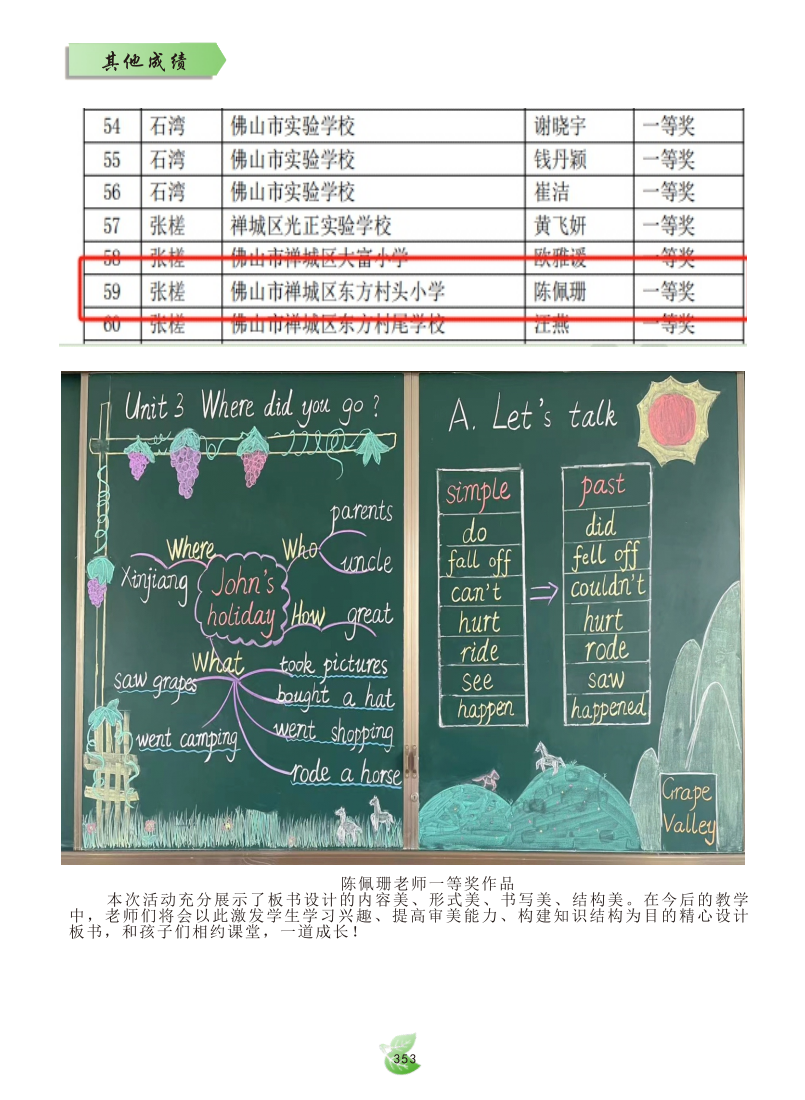 其他成绩
54 石湾 佛山市实验学校 谢晓宇 一等奖
55 石湾 佛山市实验学校 钱丹颖 一等奖
56 石湾 佛山市实验学校 崔洁 一等奖
57 张槎 禅城区光正实验学校 黄飞妍 一等奖
58 张槎 佛山市禅城区大富小学 欧雅谖 一等奖
59 张槎 佛山市禅城区东方村头小学 陈佩珊 一等奖
60 张槎 佛山市禅城区东方村尾学校 汪燕 一等奖
Unit 3 Where did you go?
parents
Where
Who
uncle
Xinjiang
John's
holiday
How
great
What
took pictures
saw grapes
bought a hat
went camping
went shopping
rode a horse
A. Let's talk
simple past
do did
fall off fell off
can't couldn't
hurt hurt
ride rode
see saw
happen happened
Grape
Valley
陈佩珊老师一等奖作品
本次活动充分展示了板书设计的内容美、形式美、书写美、结构美。在今后的教学
中，老师们将会以此激发学生学习兴趣、提高审美能力、构建知识结构为目的精心设计
板书，和孩子们相约课堂，一道成长！
353